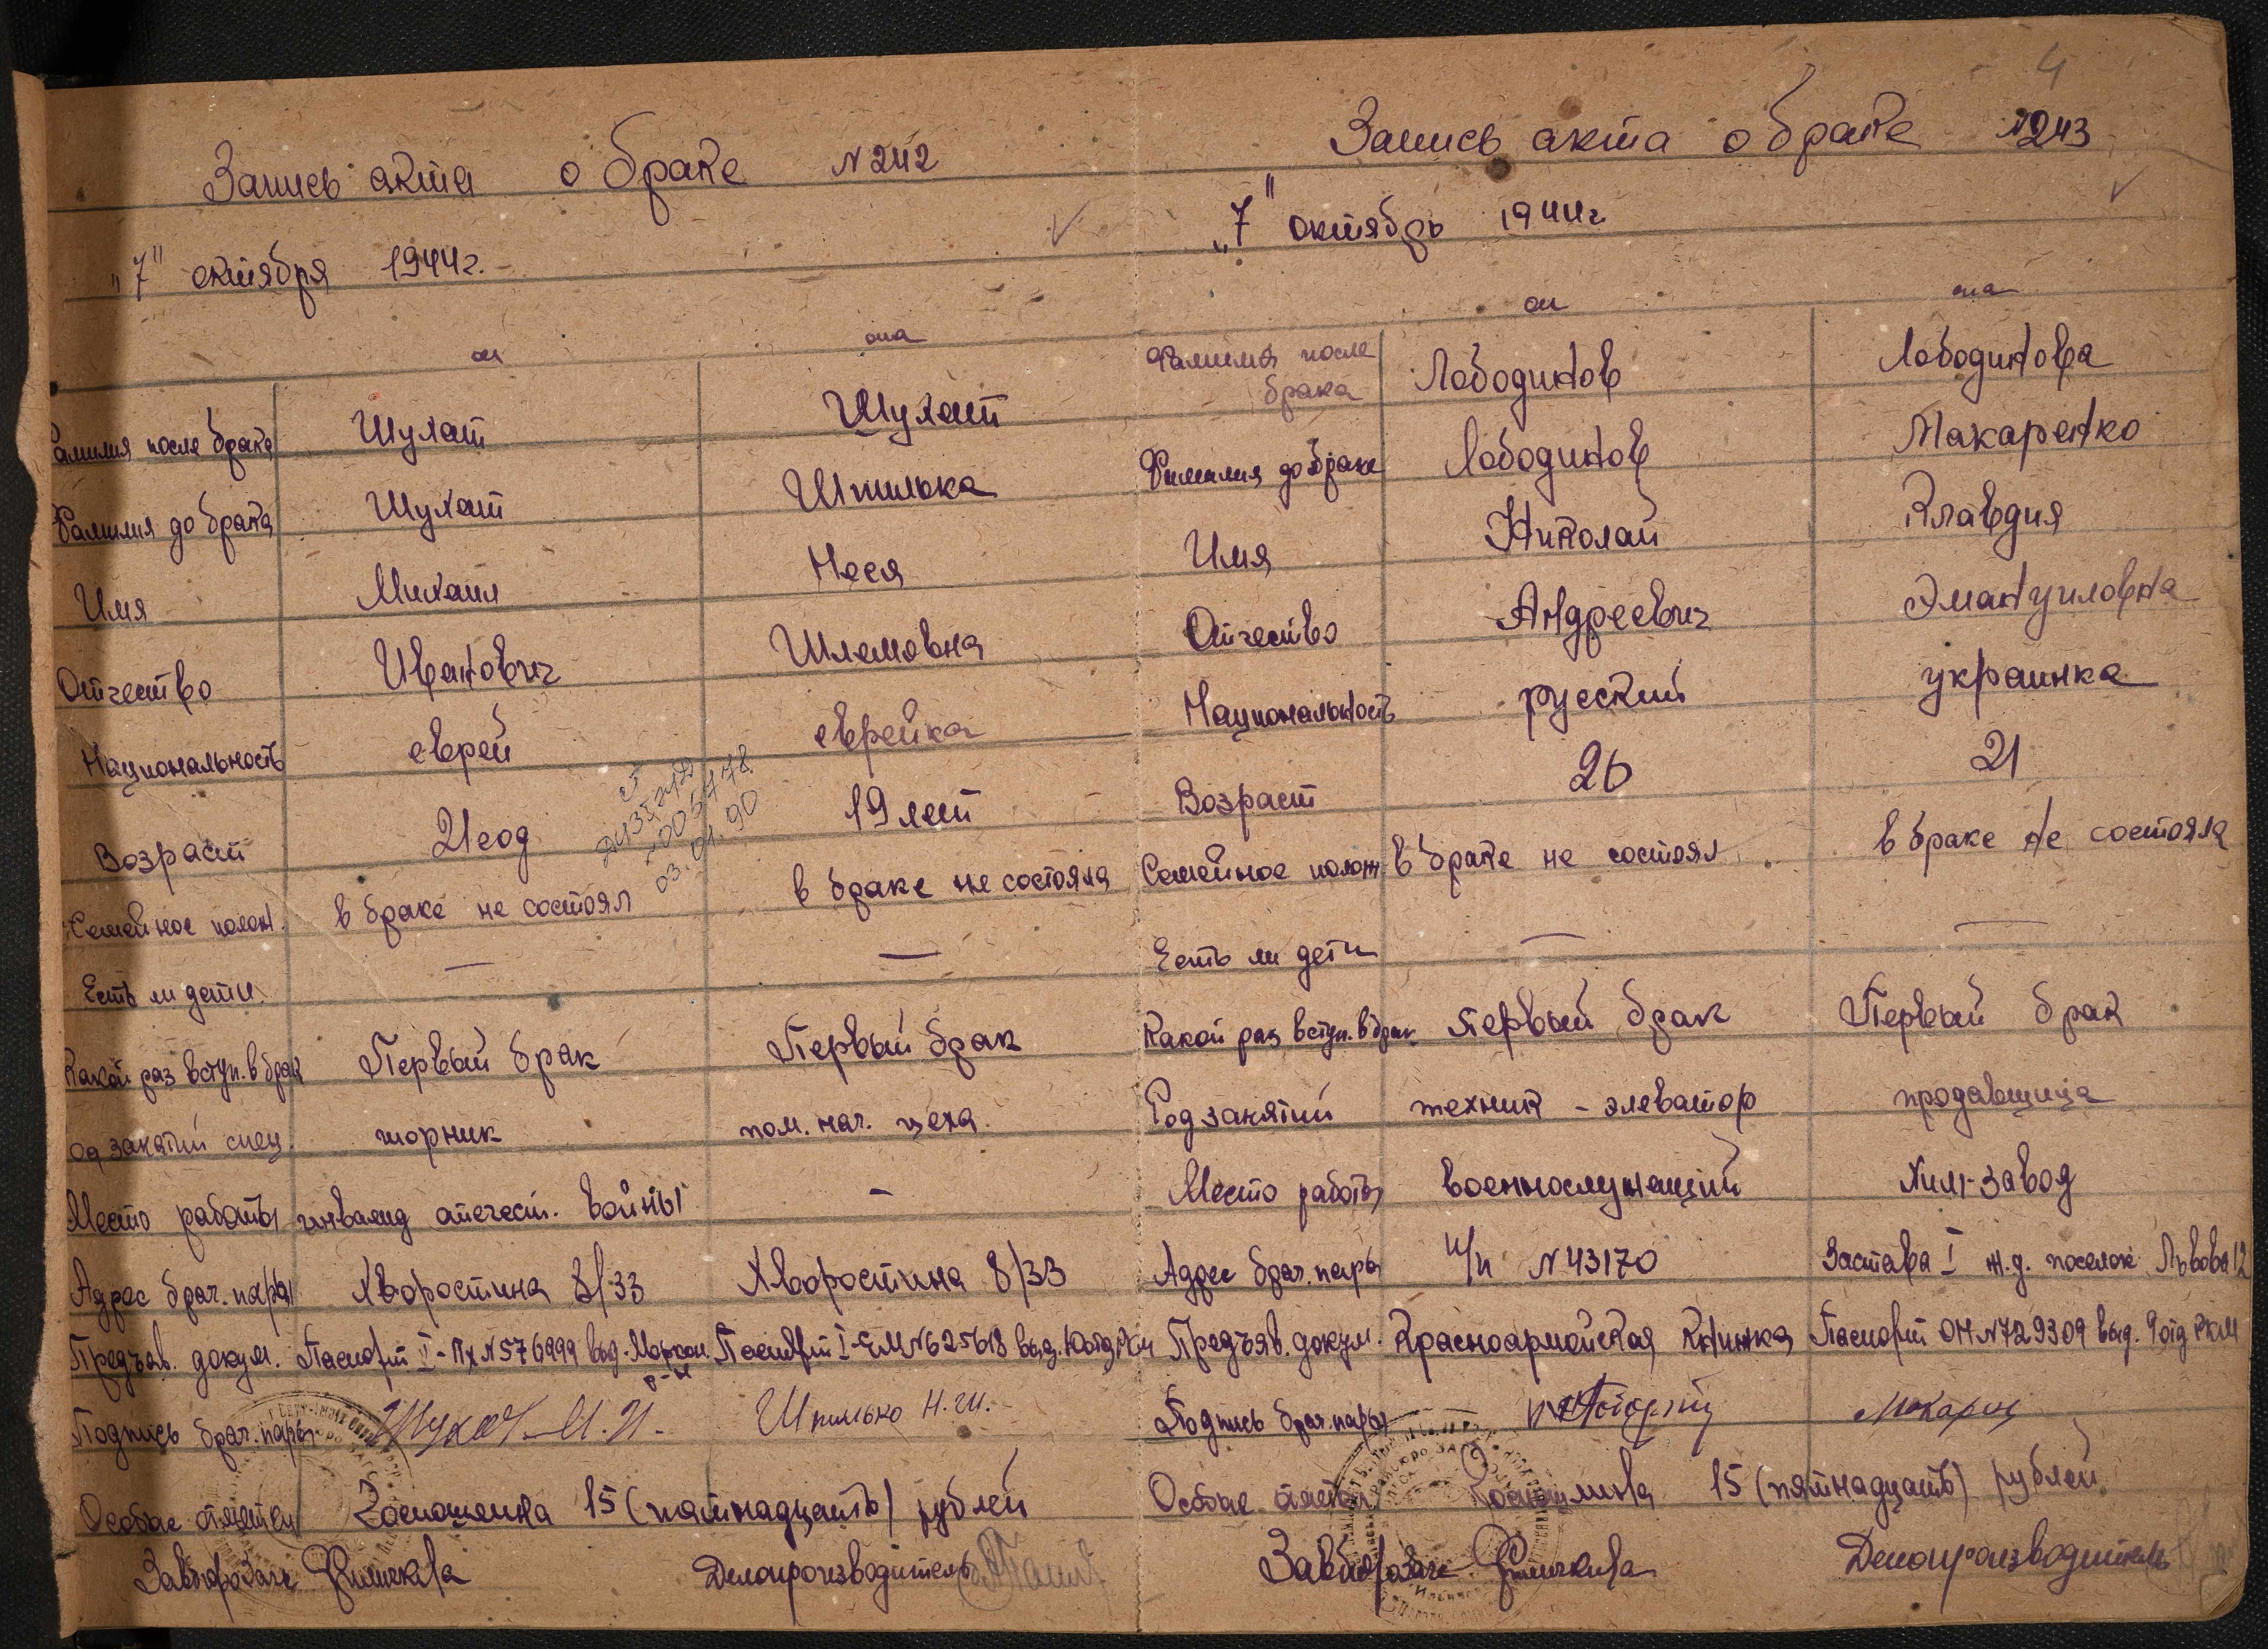 4
Запись акта о браке N 242
"7" октября 1944г.
он она
Фамилия после брака Шухат Шухат
Фамилия до брака Шухат Шпилька
Имя Михаил Неся
Отчество Иванович Шлемовна
Национальность еврей еврейка
Возраст 21 год 19 лет
03.01.90
Семейное полож. в браке не состоял в браке не состояла
Есть ли дети. — —
Какой раз вступ. в брак Первый брак Первый брак
од занятий спец. шорник пом. нач. цеха
Место работы инвалид отечест. войны -
Адрес брач. пары Хворостина 8/33 Хворостина 8/33
Предъяв. докум. Паспорт N 576999 выд. Паспорт N 625618 выд.
р-н
Подпись брач. пары Шухат М.И. Шпилько Н.Ш.
Особые отметки Госпошлина 15 (пятнадцать) рублей
Завбюро Загс Делопроизводитель
Запись акта о браке N 243
"7" октябрь 1944г
он она
Фамилия после
брака Лободинов Лободинова
Фамилия до брака Лободинов Макаренко
Имя Николай Клавдия
Отчество Андреевич Эмануиловна
Национальность русский украинка
Возраст 26 21
Семейное полож в браке не состоял в браке не состояла
Есть ли дети — —
Какой раз вступ. в брак Первый брак Первый брак
Род занятий техник - элеватор продавщица
Место работы военнослужащий Хим-завод
Адрес брач. пары п/п N 43170 Застава I ж.д. поселок Львова 12
Предъяв. докум. Красноармейская книжка Паспорт ОН N 729309 выд. 9 отд РКМ
Подпись брач. пары
Особые отметки Госпошлина 15 (пятнадцать) рублей
Завбюро Загс Делопроизводитель